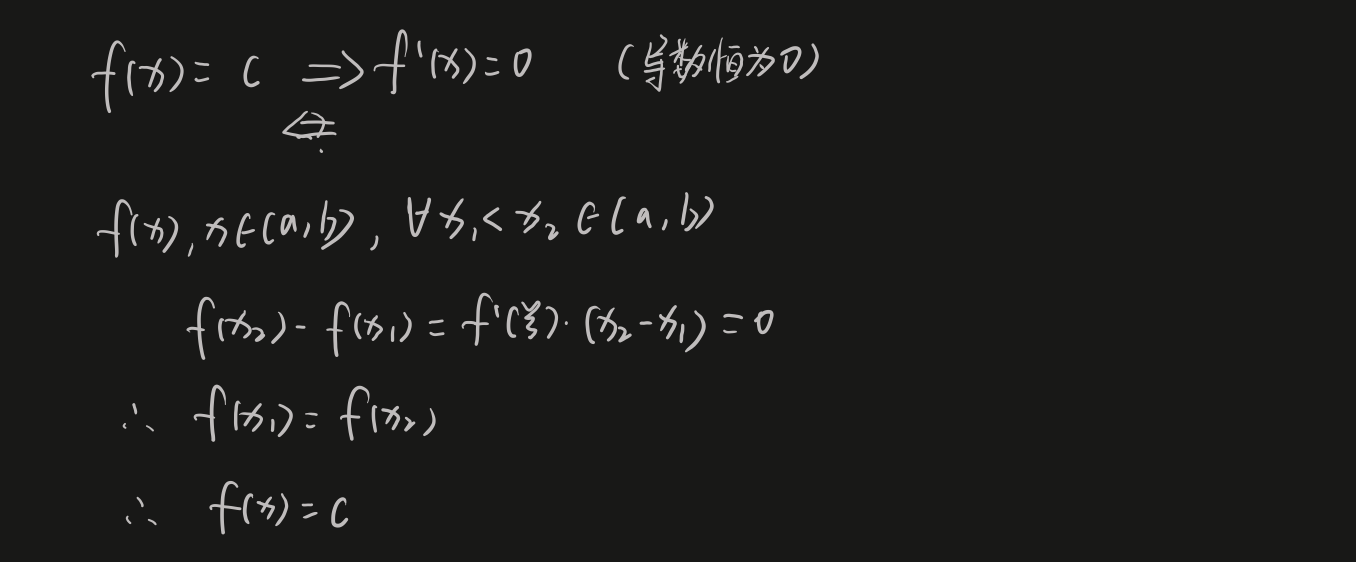 f(x) = C ⟹ f'(x) = 0 (导数恒为0)
⟸ ?
f(x), x∈(a,b), ∀x₁<x₂∈(a,b)
f(x₂) - f(x₁) = f'(ξ)·(x₂-x₁) = 0
∴ f(x₁) = f(x₂)
∴ f(x) = C